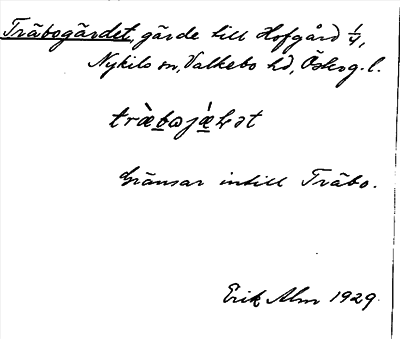 Träbogärdet, gärde till Hofgård 1/4,
Nykils sn, Valkebo hd, Österg. l.
Gränsar intill Träbo.
Erik Alm 1929.